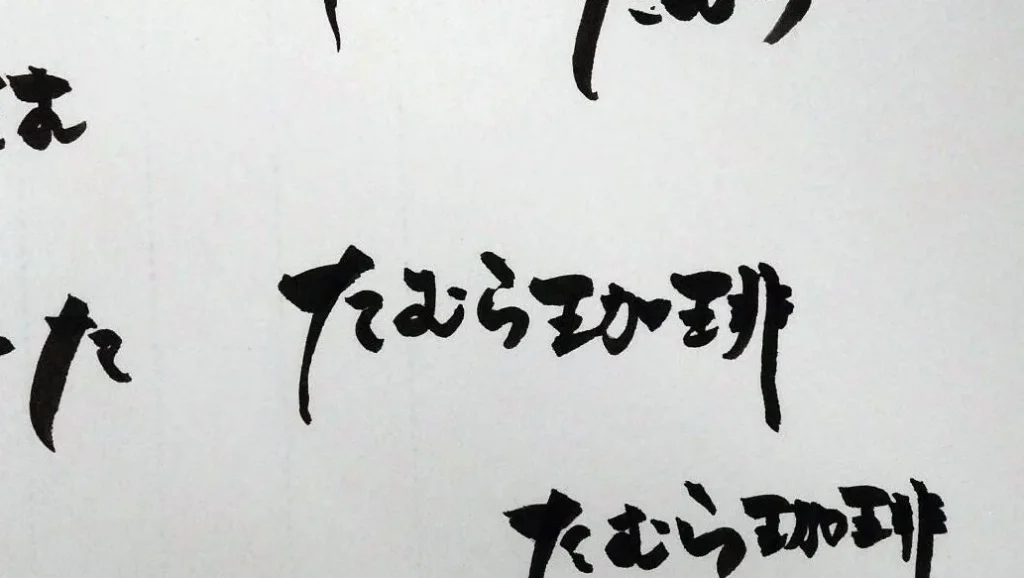 た
たむら珈琲
たむら珈琲